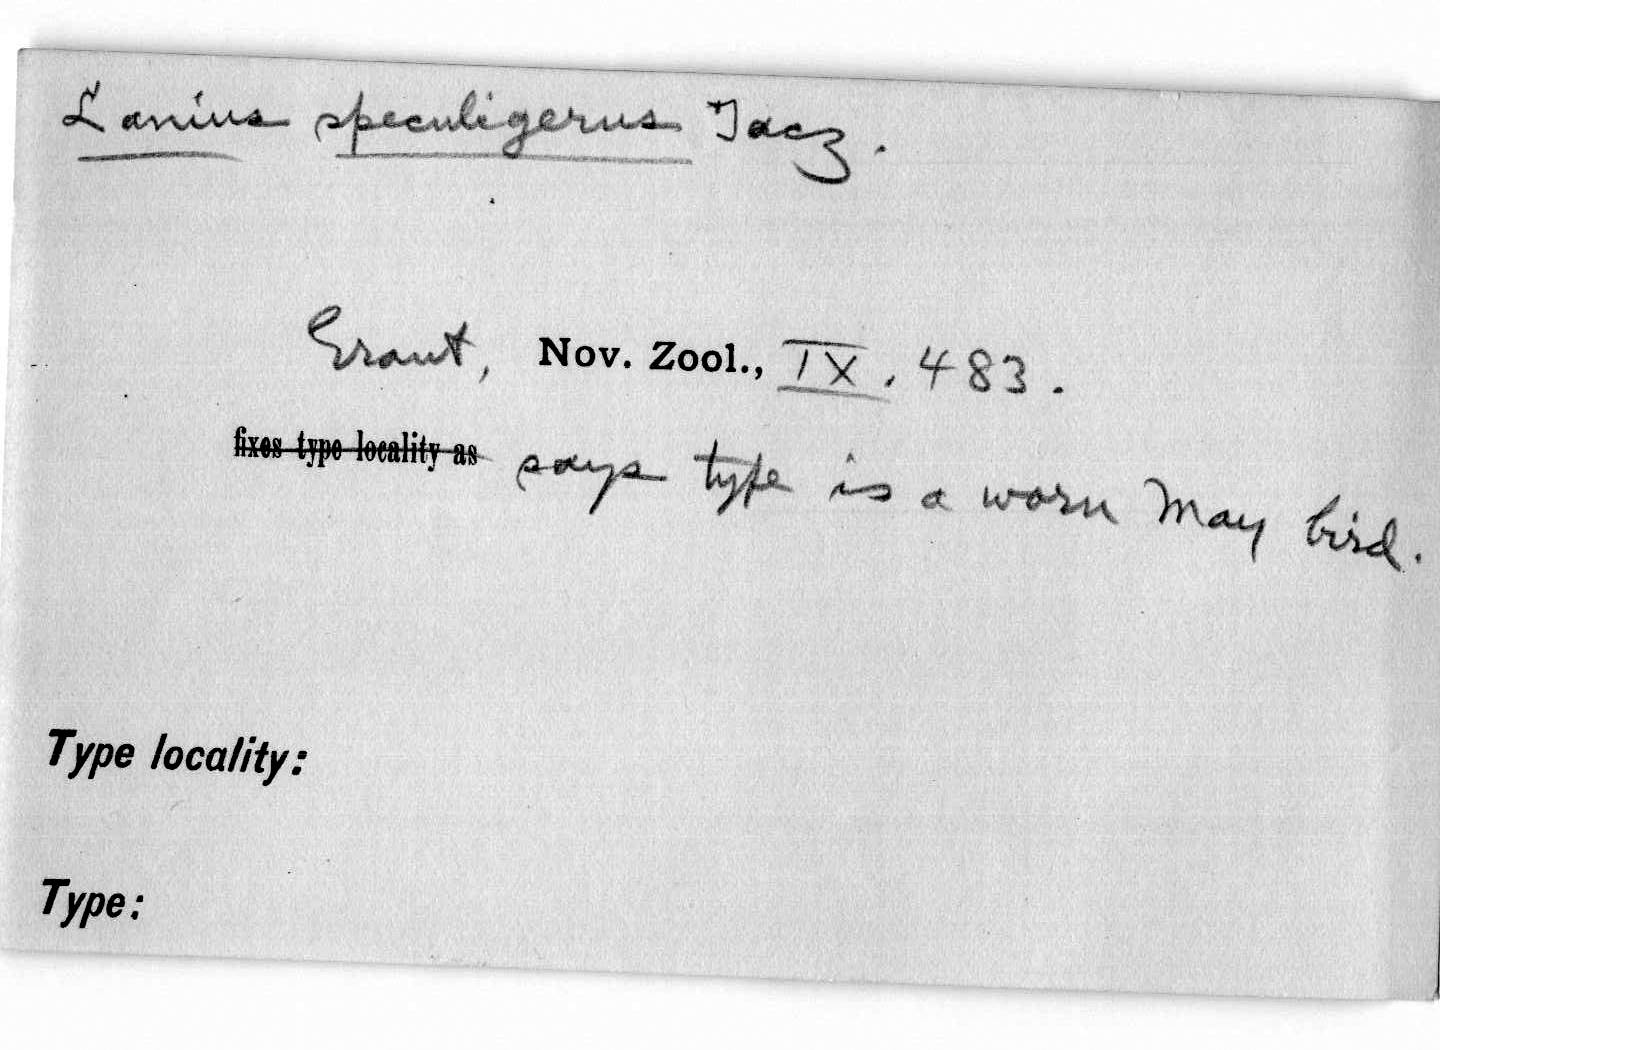 Lanius speculigerus Tacz.
Grant, Nov. Zool., IX. 483.
fixes type locality as says type is a worn May bird.
Type locality:
Type: